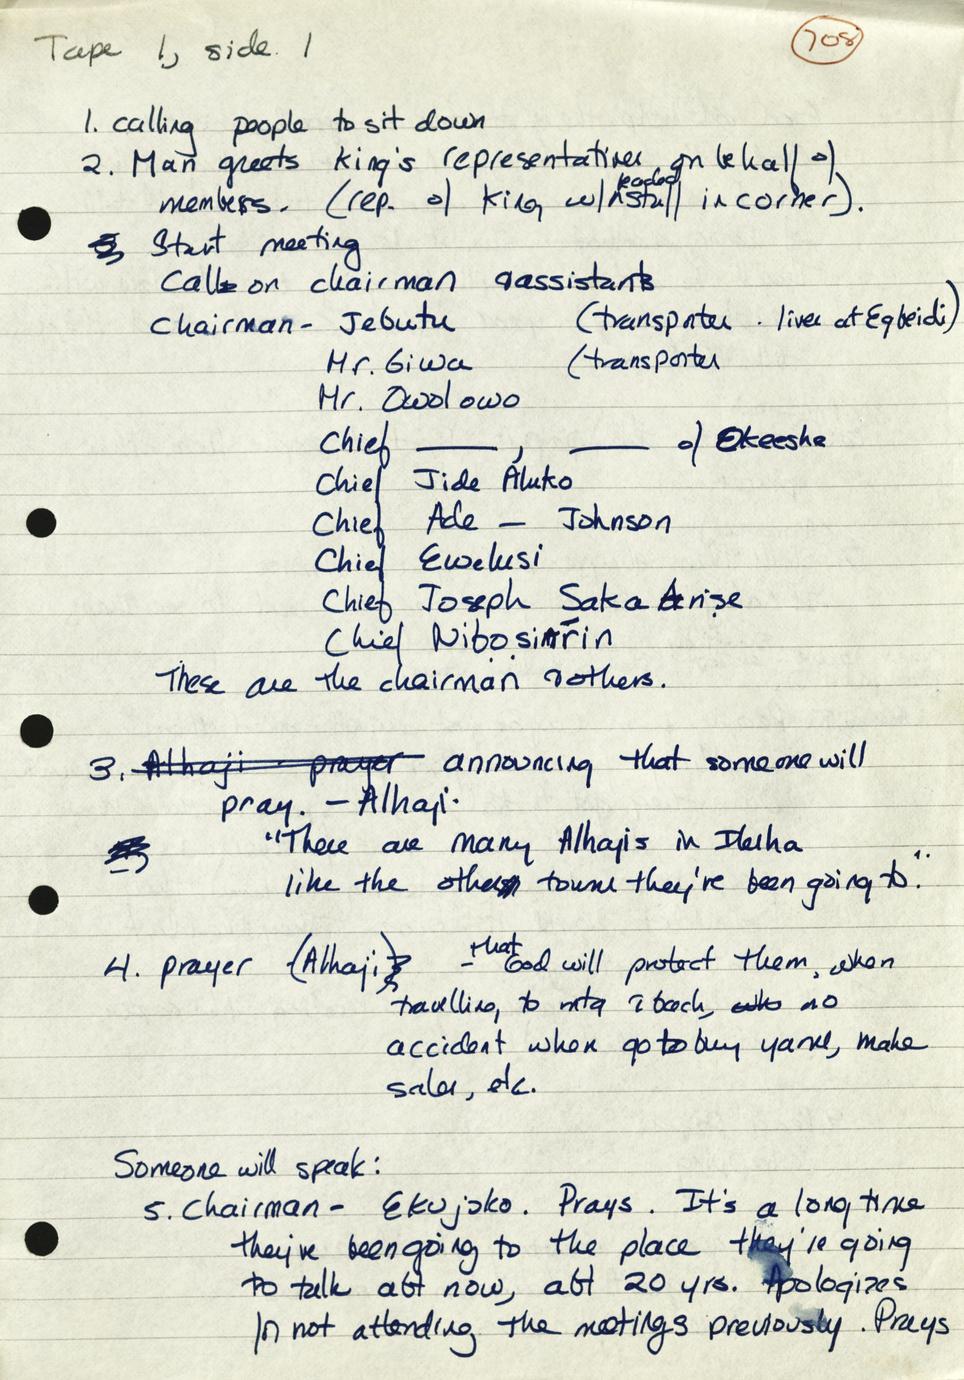 Tape 1, side 1
708
1. calling people to sit down
2. Man greets King's representatives, on behalf of
members. (rep. of King w/ beaded staff in corner).
Start meeting
Calls on chairman & assistants
Chairman - Jebutu (transporter. lives at Egbeidi)
Mr. Giwa (transporter
Mr. Owolowo
Chief ___, ___ of Okeesha
Chief Jide Aluko
Chief Ade - Johnson
Chief Ewelusi
Chief Joseph Saka
Chief
These are the chairman & others.
3. Alhaji - prayer announcing that someone will
pray. - Alhaji.
"There are many Alhajis in Ilesha
like the other towns they've been going to".
4. prayer (Alhaji) - that God will protect them, when
travelling, to & back, no
accident when go to buy yams, make
sales, etc.
Someone will speak:
5. Chairman - Ekujoko. Prays. It's a long time
they've been going to the place they're going
to talk abt now, abt 20 yrs. Apologizes
for not attending the meetings previously. Prays